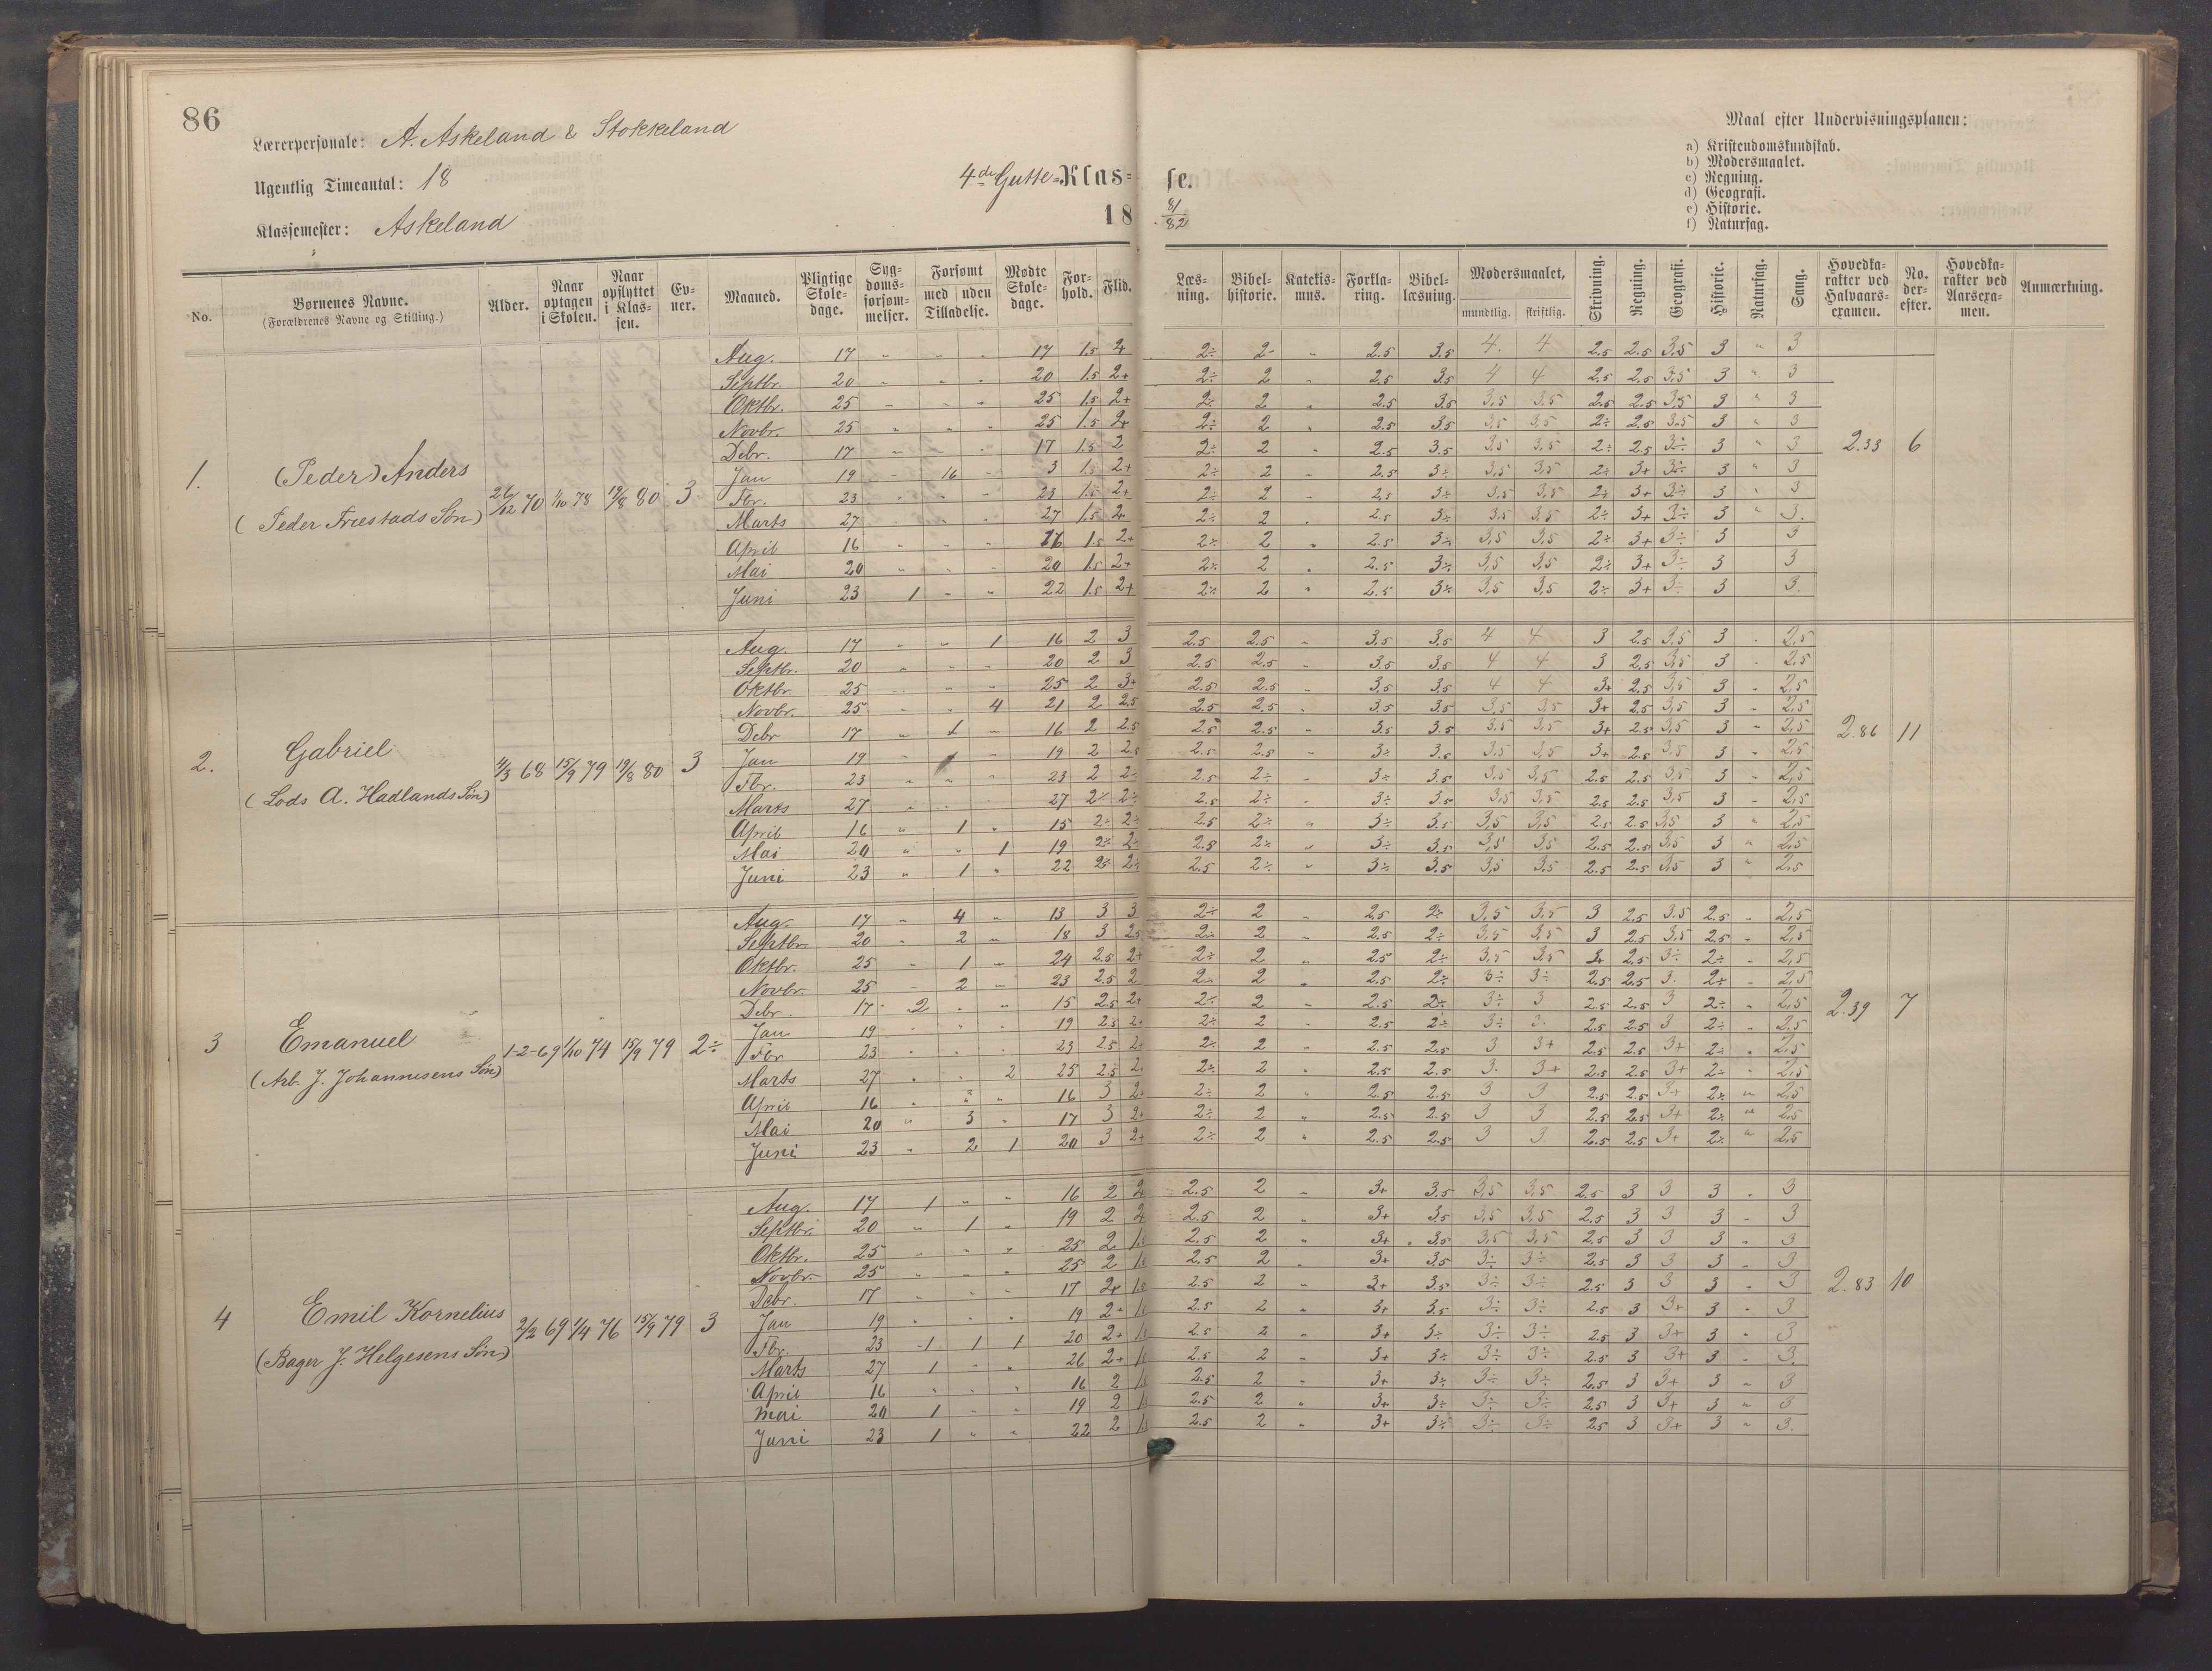 86
Lærerpersonale: A. Askeland & Stokkeland
Ugentlig Timeantal: 18
Klassemester: Askeland
4de Gutte-Klas= se.
18 81/82
Maal efter Undervisningsplanen:
a) Kristendomskundskab.
b) Modersmaalet.
c) Regning.
d) Geografi.
e) Historie.
f) Naturfag.
No. Børnenes Navne. (Forældrenes Navne og Stilling.) Alder. Naar optagen i Skolen. Naar opflyttet i Klassen. Evner. Maaned. Pligtige Skoledage. Sygdomsforsømmelser. Forsømt med uden Tilladelse. Mødte Skoledage. Forhold. Flid. Læsning. Bibelhistorie. Katekismus. Forklaring. Bibellæsning. Modersmaalet, mundtlig. skriftlig. Skrivning. Regning. Geografi. Historie. Naturfag. Sang. Hovedkarakter ved Halvaarsexamen. No. derefter. Hovedkarakter ved Aarsexamen. Anmærkning.
1. (Peder) Anders
(Peder Friestads Søn) 26/12 70 1/10 78 19/8 80 3
Aug. 17 „ „ „ 17 1.5 2+ 2÷ 2- „ 2.5 3.5 4. 4 2.5 2.5 3.5 3 „ 3
Septbr. 20 „ „ „ 20 1.5 2+ 2÷ 2 „ 2.5 3.5 4 4 2.5 2.5 3.5 3 „ 3
Oktbr. 25 „ „ „ 25 1.5 2+ 2÷ 2 „ 2.5 3.5 3,5 3,5 2.5 2.5 3.5 3 „ 3
Novbr. 25 „ „ „ 25 1.5 2+ 2÷ 2 „ 2.5 3.5 3,5 3,5 2÷ 2.5 3.5 3 „ 3
Debr. 17 „ „ „ 17 1.5 2 2÷ 2 „ 2.5 3.5 3,5 3,5 2÷ 2.5 3÷ 3 „ 3 2.33 6
Jan 19 „ 16 „ 3 1.5 2+ 2÷ 2 „ 2.5 3÷ 3,5 3,5 2÷ 3+ 3÷ 3 „ 3
Fbr. 23 „ „ „ 23 1.5 2+ 2÷ 2 „ 2.5 3÷ 3,5 3,5 2÷ 3+ 3÷ 3 „ 3
Marts 27 „ „ „ 27 1.5 2+ 2÷ 2 „ 2.5 3÷ 3,5 3,5 2÷ 3+ 3÷ 3 „ 3.
April 16 „ „ „ 16 1.5 2+ 2÷ 2 „ 2.5 3÷ 3,5 3,5 2÷ 3+ 3÷ 3 3
Mai 20 „ „ „ 20 1.5 2+ 2÷ 2 „ 2.5 3÷ 3,5 3,5 2÷ 3+ 3÷ 3 3
Juni 23 1 „ „ 22 1.5 2+ 2÷ 2 „ 2.5 3÷ 3,5 3,5 2÷ 3+ 3÷ 3 3.
2. Gabriel
(Lods A. Hadlands Søn) 4/3 68 15/9 79 19/8 80 3
Aug. 17 „ „ 1 16 2 3 2.5 2.5 „ 3.5 3.5 4 4 3 2.5 3,5 3 „ 2,5
Septbr. 20 „ „ „ 20 2 3 2.5 2.5 „ 3.5 3.5 4 4 3 2.5 3,5 3 „ 2,5
Oktbr 25 „ „ „ 25 2 3+ 2.5 2.5 „ 3.5 3.5 4 4 3+ 2.5 3,5 3 „ 2,5
Novbr. 25 „ „ 4 21 2 2.5 2.5 2.5 „ 3.5 3.5 3,5 3,5 3+ 2.5 3,5 3 „ 2,5
Debr 17 „ 1 „ 16 2 2.5 2.5 2.5 „ 3.5 3.5 3,5 3,5 3+ 2.5 3,5 3 „ 2,5 2.86 11
Jan 19 „ „ 19 2 2.5 2.5 2.5 „ 3÷ 3.5 3,5 3,5 3+ 2.5 3,5 3 „ 2,5
Fbr. 23 „ „ „ 23 2 2÷ 2.5 2÷ „ 3÷ 3.5 3,5 3,5 2.5 2.5 3,5 3 „ 2,5
Marts 27 „ „ „ 27 2÷ 2÷ 2.5 2÷ „ 3÷ 3.5 3,5 3,5 2.5 2.5 3,5 3 „ 2,5
April 16 „ 1 „ 15 2÷ 2÷ 2.5 2÷ „ 3÷ 3.5 3,5 3,5 2.5 2.5 3,5 3 „ 2,5
Mai 20 „ „ 1 19 2÷ 2÷ 2.5 2÷ „ 3÷ 3.5 3,5 3,5 2.5 2.5 3,5 3 „ 2,5
Juni 23 „ 1 „ 22 2÷ 2÷ 2.5 2÷ „ 3÷ 3.5 3,5 3,5 2.5 2.5 3,5 3 „ 2,5
3 Emanuel
(Arb. J. Johannesens Søn) 1-2-69 1/10 74 15/9 79 2÷
Aug. 17 „ 4 „ 13 3 3 2÷ 2 „ 2.5 2÷ 3,5 3,5 3 2.5 3,5 2.5 „ 2,5
Septbr. 20 „ 2 „ 18 3 2.5 2÷ 2 „ 2.5 2÷ 3,5 3,5 3 2.5 3,5 2.5 „ 2,5
Oktbr. 25 „ 1 „ 24 2.5 2+ 2÷ 2 „ 2.5 2÷ 3,5 3,5 3+ 2.5 3÷ 2÷ „ 2,5
Novbr. 25 „ 2 „ 23 2.5 2 2÷ 2 „ 2.5 2÷ 3÷ 3÷ 2.5 2.5 3. 2÷ „ 2,5
Debr. 17 2 „ „ 15 2.5 2+ 2÷ 2 „ 2.5 2÷ 3÷ 3 2.5 2.5 3 2÷ „ 2,5 2.39 7
Jan 19 „ „ „ 19 2.5 2+ 2÷ 2 „ 2.5 2÷ 3÷ 3. 2.5 2.5 3 2÷ „ 2,5
Fbr 23 „ „ „ 23 2.5 2+ 2÷ 2 „ 2.5 2.5 3 3+ 2.5 2.5 3+ 2÷ „ 2,5
Marts 27 „ „ 2 25 2.5 2. 2÷ 2 „ 2.5 2.5 3. 3+ 2.5 2.5 3+ 2÷ „ 2,5
April 16 „ „ „ 16 3 2+ 2÷ 2 „ 2.5 2.5 3 3 2.5 2.5 3+ 2÷ „ 2,5
Mai 20 „ 3 „ 17 3 2+ 2÷ 2 „ 2.5 2.5 3 3 2.5 2.5 3+ 2÷ „ 2,5
Juni 23 „ 2 1 20 3 2+ 2÷ 2 „ 2.5 2.5 3 3. 2.5 2.5 3+ 2÷ „ 2,5
4 Emil Kornelius
(Bager J. Helgesens Søn) 2/2 69 1/4 76 15/9 79 3
Aug. 17 1 „ „ 16 2 2.5 2 „ 3+ 3.5 3,5 3,5 2.5 3 3 3 „ 3
Septbr. 20 „ 1 „ 19 2 2.5 2 „ 3+ 3.5 3,5 3,5 2.5 3 3 3 „ 3
Oktbr. 25 „ „ „ 25 2 2.5 2 „ 3+ 3.5 3,5 3,5 2.5 3 3 3 „ 3
Novbr. 25 „ „ „ 25 2 2.5 2 „ 3+ 3.5 3÷ 3÷ 2.5 3 3 3 „ 3
Debr. 17 „ „ „ 17 2+ 2.5 2 „ 3+ 3.5 3÷ 3÷ 2.5 3 3 3 „ 3 2.83 10
Jan 19 „ „ „ 19 2+ 2.5 2 „ 3+ 3.5 3÷ 3÷ 2.5 3 3+ 3 „ 3
Fbr. 23 1 1 1 20 2+ 2.5 2 „ 3+ 3÷ 3÷ 3÷ 2.5 3 3+ 3 „ 3
Marts 27 1 „ „ 26 2+ 2.5 2 „ 3+ 3÷ 3÷ 3÷ 2.5 3 3+ 3 „ 3.
April 16 „ „ „ 16 2 2.5 2 „ 3+ 3÷ 3÷ 3÷ 2.5 3 3+ 3 „ 3
Mai 20 1 „ „ 19 2 2.5 2 „ 3+ 3÷ 3÷ 3÷ 2.5 3 3+ 3 „ 3
Juni 23 1 „ „ 22 2 2.5 2 „ 3+ 3÷ 3÷ 3÷ 2.5 3 3+ 3 „ 3.